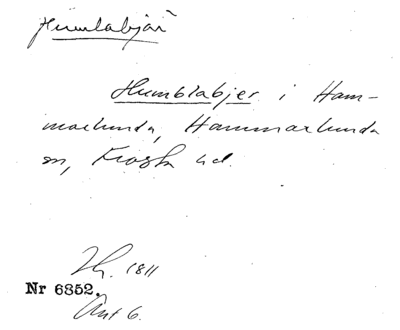 Humlabjär
Humblabjer i Ham-
marlunda, Hammarlunda
sn, Frosta hd.
Jb. 1811
Nr 6352.
Ant 6.